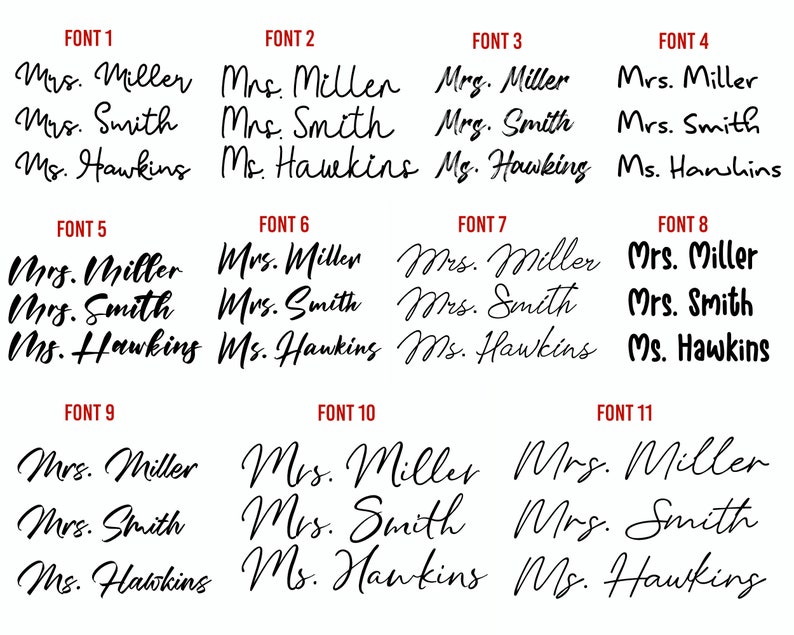 FONT 1
Mrs. Miller
Mrs. Smith
Ms. Hawkins
FONT 2
Mrs. Miller
Mrs. Smith
Ms. Hawkins
FONT 3
Mrs. Miller
Mrs. Smith
Ms. Hawkins
FONT 4
Mrs. Miller
Mrs. Smith
Ms. Hawkins
FONT 5
Mrs. Miller
Mrs. Smith
Ms. Hawkins
FONT 6
Mrs. Miller
Mrs. Smith
Ms. Hawkins
FONT 7
Mrs. Miller
Mrs. Smith
Ms. Hawkins
FONT 8
Mrs. Miller
Mrs. Smith
Ms. Hawkins
FONT 9
Mrs. Miller
Mrs. Smith
Ms. Hawkins
FONT 10
Mrs. Miller
Mrs. Smith
Ms. Hawkins
FONT 11
Mrs. Miller
Mrs. Smith
Ms. Hawkins